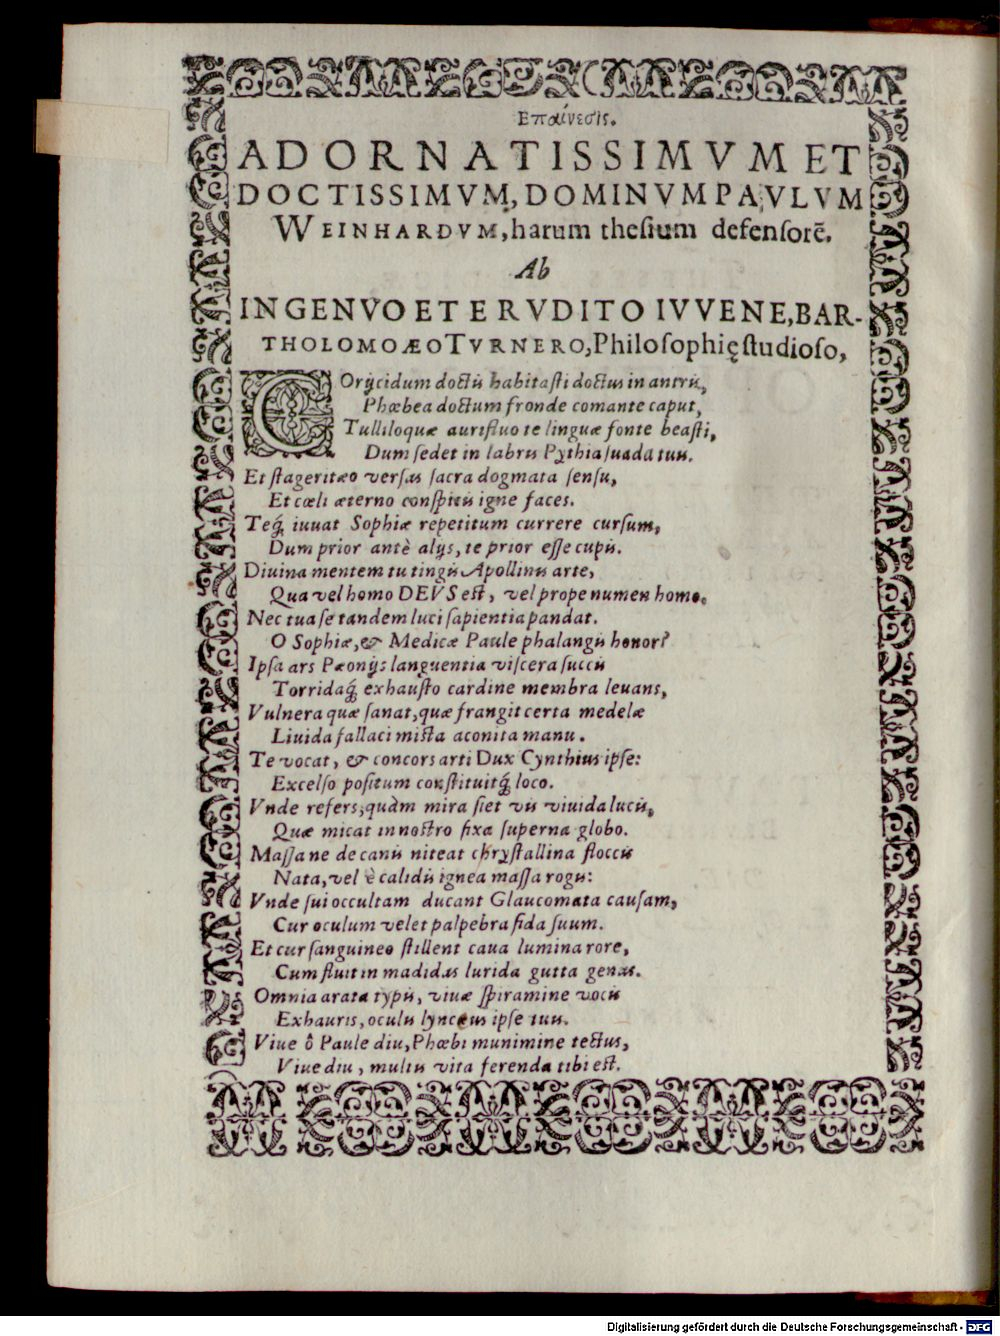 Επαίνεσις.
ADORNATISSIMVM ET
DOCTISSIMVM, DOMINVM PAVLVM
WEINHARDVM, harum thesium defensorē.
Ab
INGENVO ET ERVDITO IVVENE, BAR-
THOLOMOÆO TVRNERO, Philosophię studioso,
Corycidum doctis habitasti doctus in antris,
Phœbea doctum fronde comante caput,
Tulliloquæ aurifluo te linguæ fonte beasti,
Dum sedet in labris Pythia suada tuis.
Et stageritæo versas sacra dogmata sensu,
Et cœli æterno conspicis igne faces.
Teq́; iuuat Sophiæ repetitum currere cursum,
Dum prior antè alijs, te prior esse cupis.
Diuina mentem tu tingis Apollinis arte,
Qua vel homo DEVS est, vel prope numen homo.
Nec tua se tandem luci sapientia pandat.
O Sophiæ, & Medicæ Paule phalangis honor?
Ipsa ars Pæonijs languentia viscera succis
Torridaq́; exhausto cardine membra leuans,
Vulnera quæ sanat, quæ frangit certa medelæ
Liuida fallaci mista aconita manu.
Te vocat, & concors arti Dux Cynthius ipse:
Excelso positum constituitq́; loco.
Vnde refers, quàm mira siet vis viuida lucis,
Quæ micat in nostro fixa superna globo.
Massa ne de canis niteat chrystallina floccis
Nata, vel è calidis ignea massa rogis:
Vnde sui occultam ducant Glaucomata causam,
Cur oculum velet palpebra fida suum.
Et cur sanguineo stillent caua lumina rore,
Cum fluit in madidas lurida gutta genas.
Omnia arata typis, viuæ spiramine vocis
Exhauris, oculis lynceus ipse tuis.
Viue ô Paule diu, Phœbi munimine tectus,
Viue diu, multis vita ferenda tibi est.
Digitalisierung gefördert durch die Deutsche Forschungsgemeinschaft - DFG